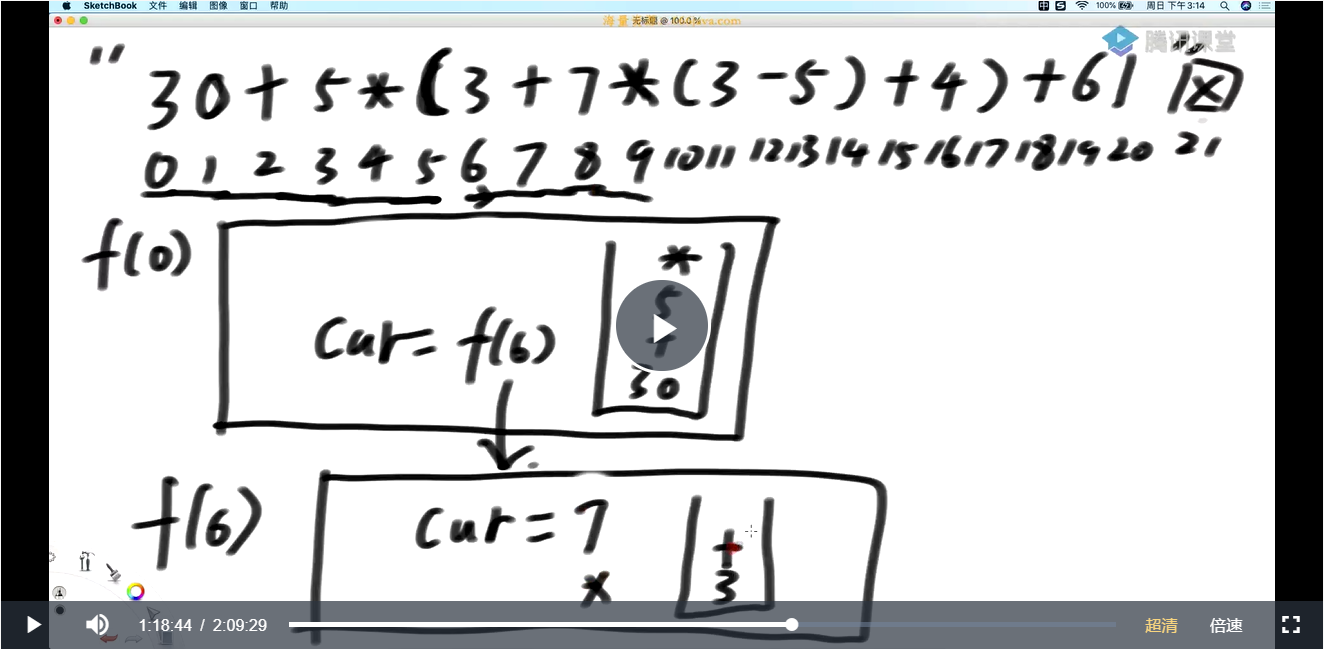 SketchBook 文件 编辑 图像 窗口 帮助 100% 周日 下午3:14
无标题 @ 100.0 %
腾讯课堂
" 30+5*(3+7*(3-5)+4)+61
0 1 2 3 4 5 6 7 8 9 10 11 12 13 14 15 16 17 18 19 20 21
f(0)
*
5
+
cur= f(6)
30
f(6)
cur=7
+
*
3
1:18:44 / 2:09:29 超清 倍速